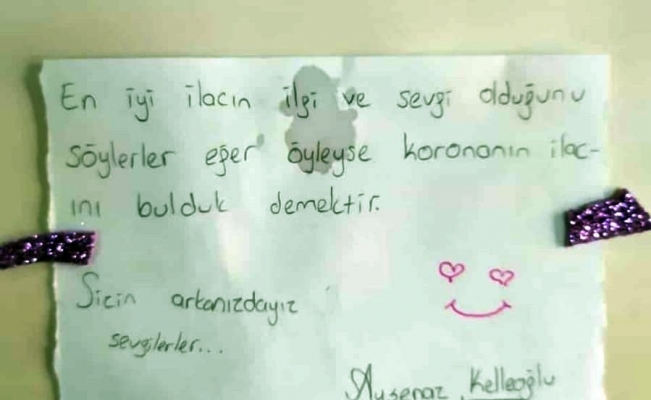 En iyi ilacın ilgi ve sevgi olduğunu
söylerler eğer öyleyse koronanın ilac-
ını bulduk demektir.
Sizin arkanızdayız
sevgilerler...
Ayşenaz Kelleoğlu